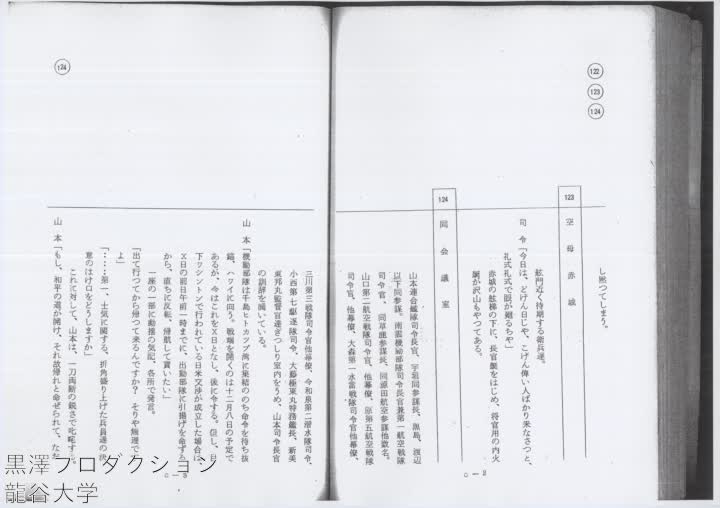 122
123
124
し黙つてしまう。
123 空母赤城
舷門近く待期する衛兵達。
司 令「今日は、どげん日じや、こげん偉い人ばかり来なさつと、
礼式礼式で眼が廻るぢや」
赤城の舷梯の下に、長官艇をはじめ、将官用の内火
艇が沢山もやつてある。
124 同 会議室
山本連合艦隊司令長官、宇垣同参謀長、黒島、渡辺
以下同参謀。南雲機動部隊司令長官兼第一航空戦隊
司令官、同草鹿参謀長、同源田航空参謀他数名。
山口第二航空戦隊司令官、他幕僚、原第五航空戦隊
司令官、他幕僚、大森第一水雷戦隊司令官他幕僚、
C—2
124
三川第三戦隊司令官他幕僚、今和泉第二潜水隊司令、
小西第七駆逐隊司令、大藤極東丸特務艦長、新美
東邦丸監督官達ぎつしり室内をうめ、山本司令長官
の訓辞を聞いている。
山 本「機動部隊は千島ヒトカップ湾に集結ののち命令を待ち抜
錨、ハワイに向う。戦端を開くのは十二月八日の予定で
あるが、今はこれをX日となし、後に令する。但し、目
下ワシントンで行われている日米交渉が成立した場合は
X日の前日午前一時までに、出動部隊に引揚げを命ずる
から、直ちに反転、帰航して貰いたい」
一座の一部に動揺の気配、各所で発言。
「出て行つてから帰つて来るんですか? そりや無理です
よ」
「‥‥第一、士気に関する、折角盛り上げた兵員達の決
意のはけ口をどうしますか」
これに対して、山本は、一刀両断の鋭さで叱咤す
山 本「もし、和平の道が開け、それ故帰れと命ぜられて、なお
C—3
黒澤プロダクション
龍谷大学